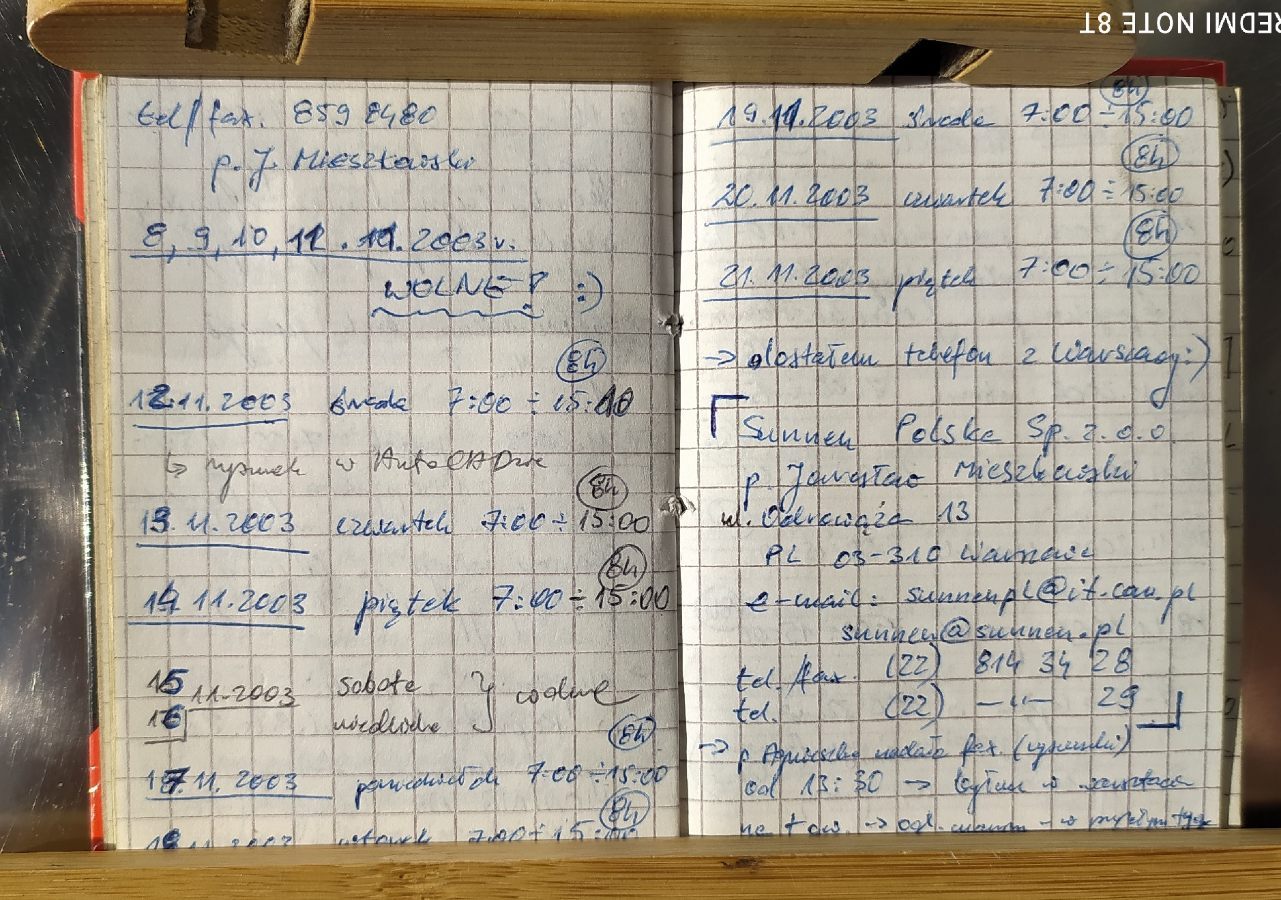 REDMI NOTE 8T
tel/fax. 859 8480
p. J. Mieszkowski
8, 9, 10, 11 . 11. 2003 r.
WOLNE! :)
8h
12.11.2003 środa 7:00 ÷ 15:00
↳ rysunek w AutoCADzie
8h
13.11.2003 czwartek 7:00 ÷ 15:00
8h
14 11.2003 piątek 7:00 ÷ 15:00
15 11.2003 sobota } wolne
16 niedziela
8h
17.11.2003 poniedziałek 7:00 ÷ 15:00
8h
18.11.2003 wtorek 7:00 ÷ 15:00
8h
19.11.2003 środa 7:00 ÷ 15:00
8h
20.11.2003 czwartek 7:00 ÷ 15:00
8h
21.11.2003 piątek 7:00 ÷ 15:00
→ dostałem telefon z Warszawy :)
Sunnen Polska Sp. z.o.o
p. Jarosław Mieszkowski
ul. Odrowąża 13
PL 03-310 Warszawa
e-mail: sunnenpl@it.com.pl
sunnen@sunnen.pl
tel./fax. (22) 814 34 28
tel. (22) —"— 29
→ p. Agnieszka nadała fax. (rysunki)
od 13:30 → byłem w
na → w przyszłym tyg.